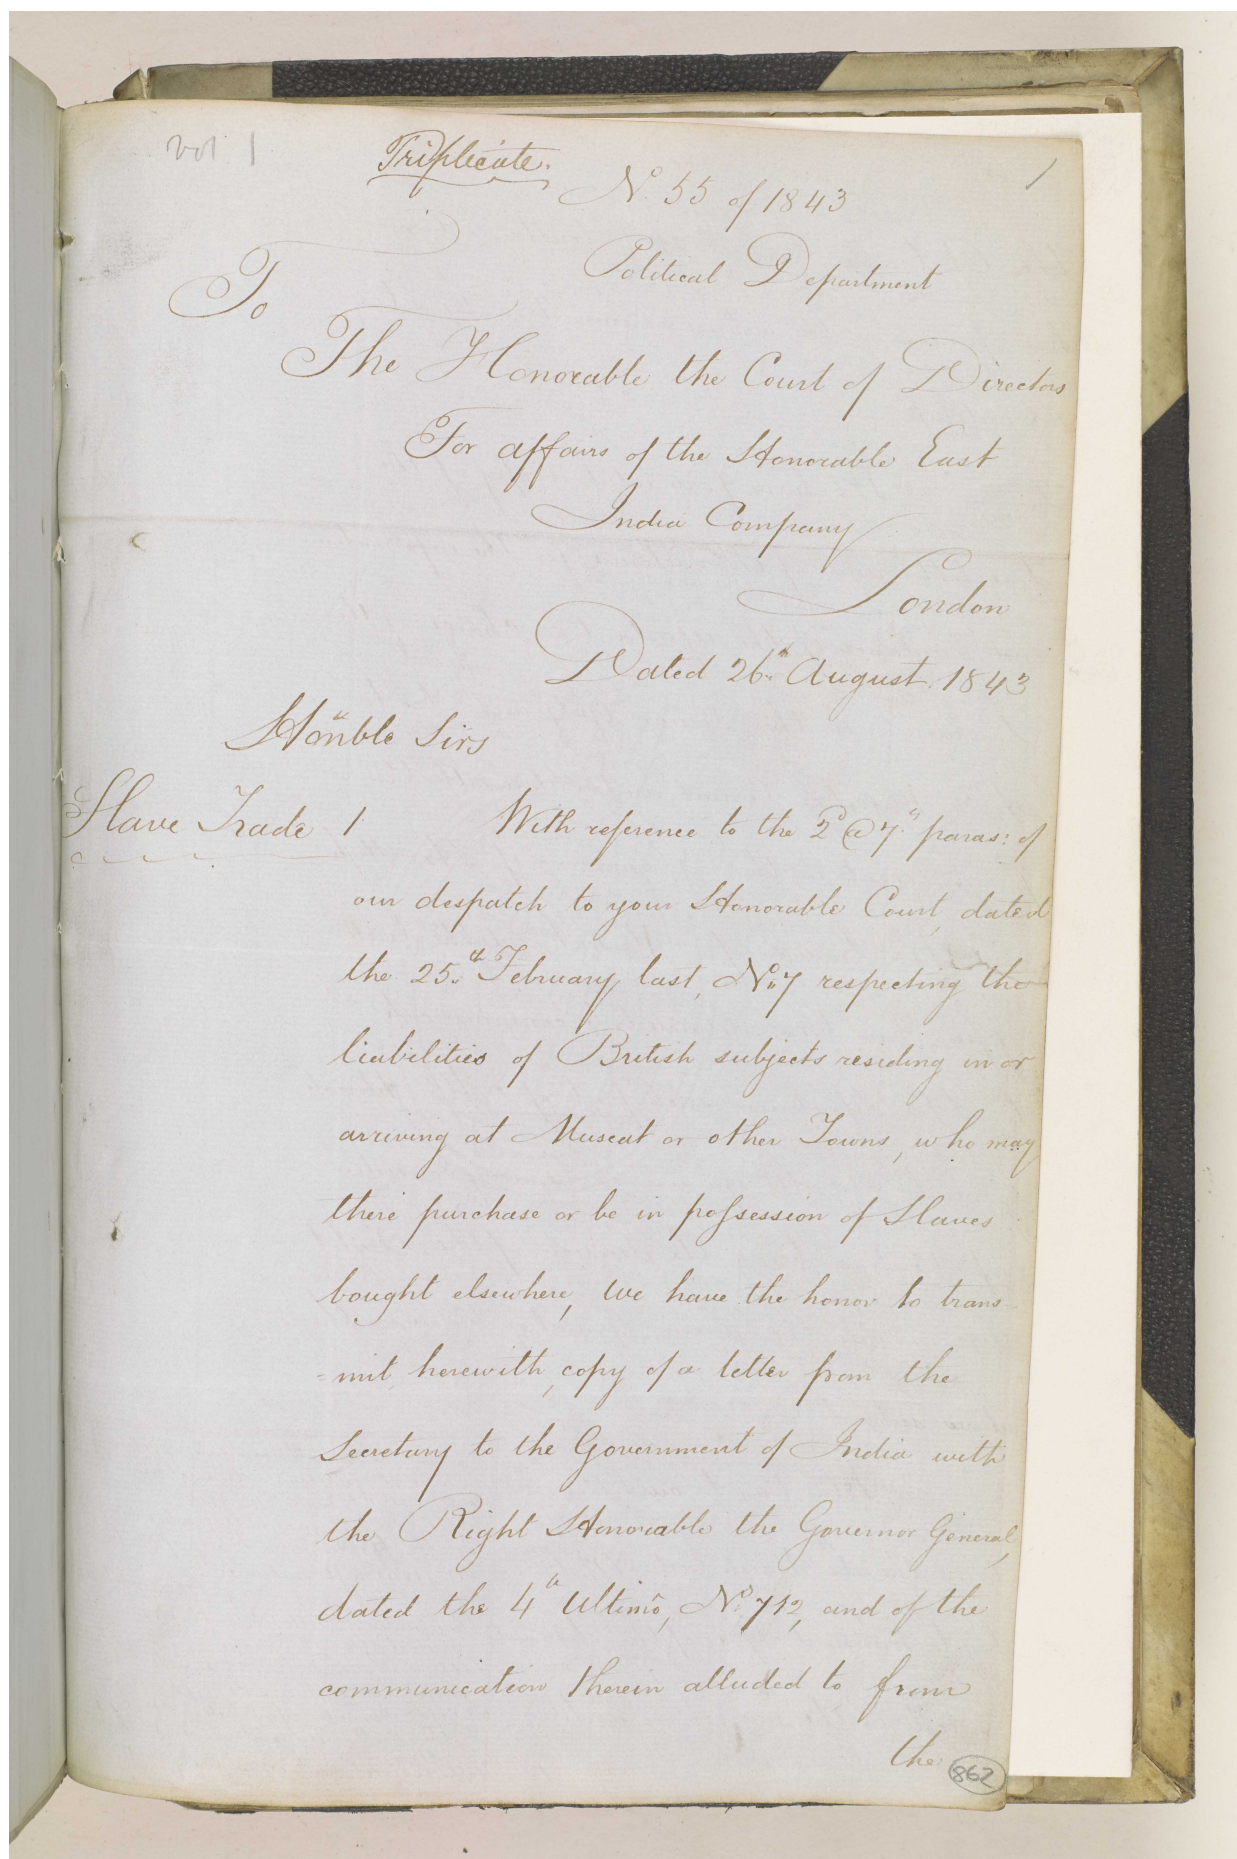 vol 1
Triplicate.
1
No. 55 of 1843
Political Department
To
The Honorable the Court of Directors
For affairs of the Honorable East
India Company
London
Dated 26th August 1843
Honble Sirs
Slave Trade 1 With reference to the 2d @ 7th paras: of
our despatch to your Honorable Court, dated
the 25th February last, No 7 respecting the
liabilities of British subjects residing in or
arriving at Muscat or other Towns, who may
there purchase or be in possession of Slaves
bought elsewhere, we have the honor to trans-
=mit herewith, copy of a letter from the
Secretary to the Government of India with
the Right Honorable the Governor General,
dated the 4th Ultimo, No. 712, and of the
communication therein alluded to from
the
862